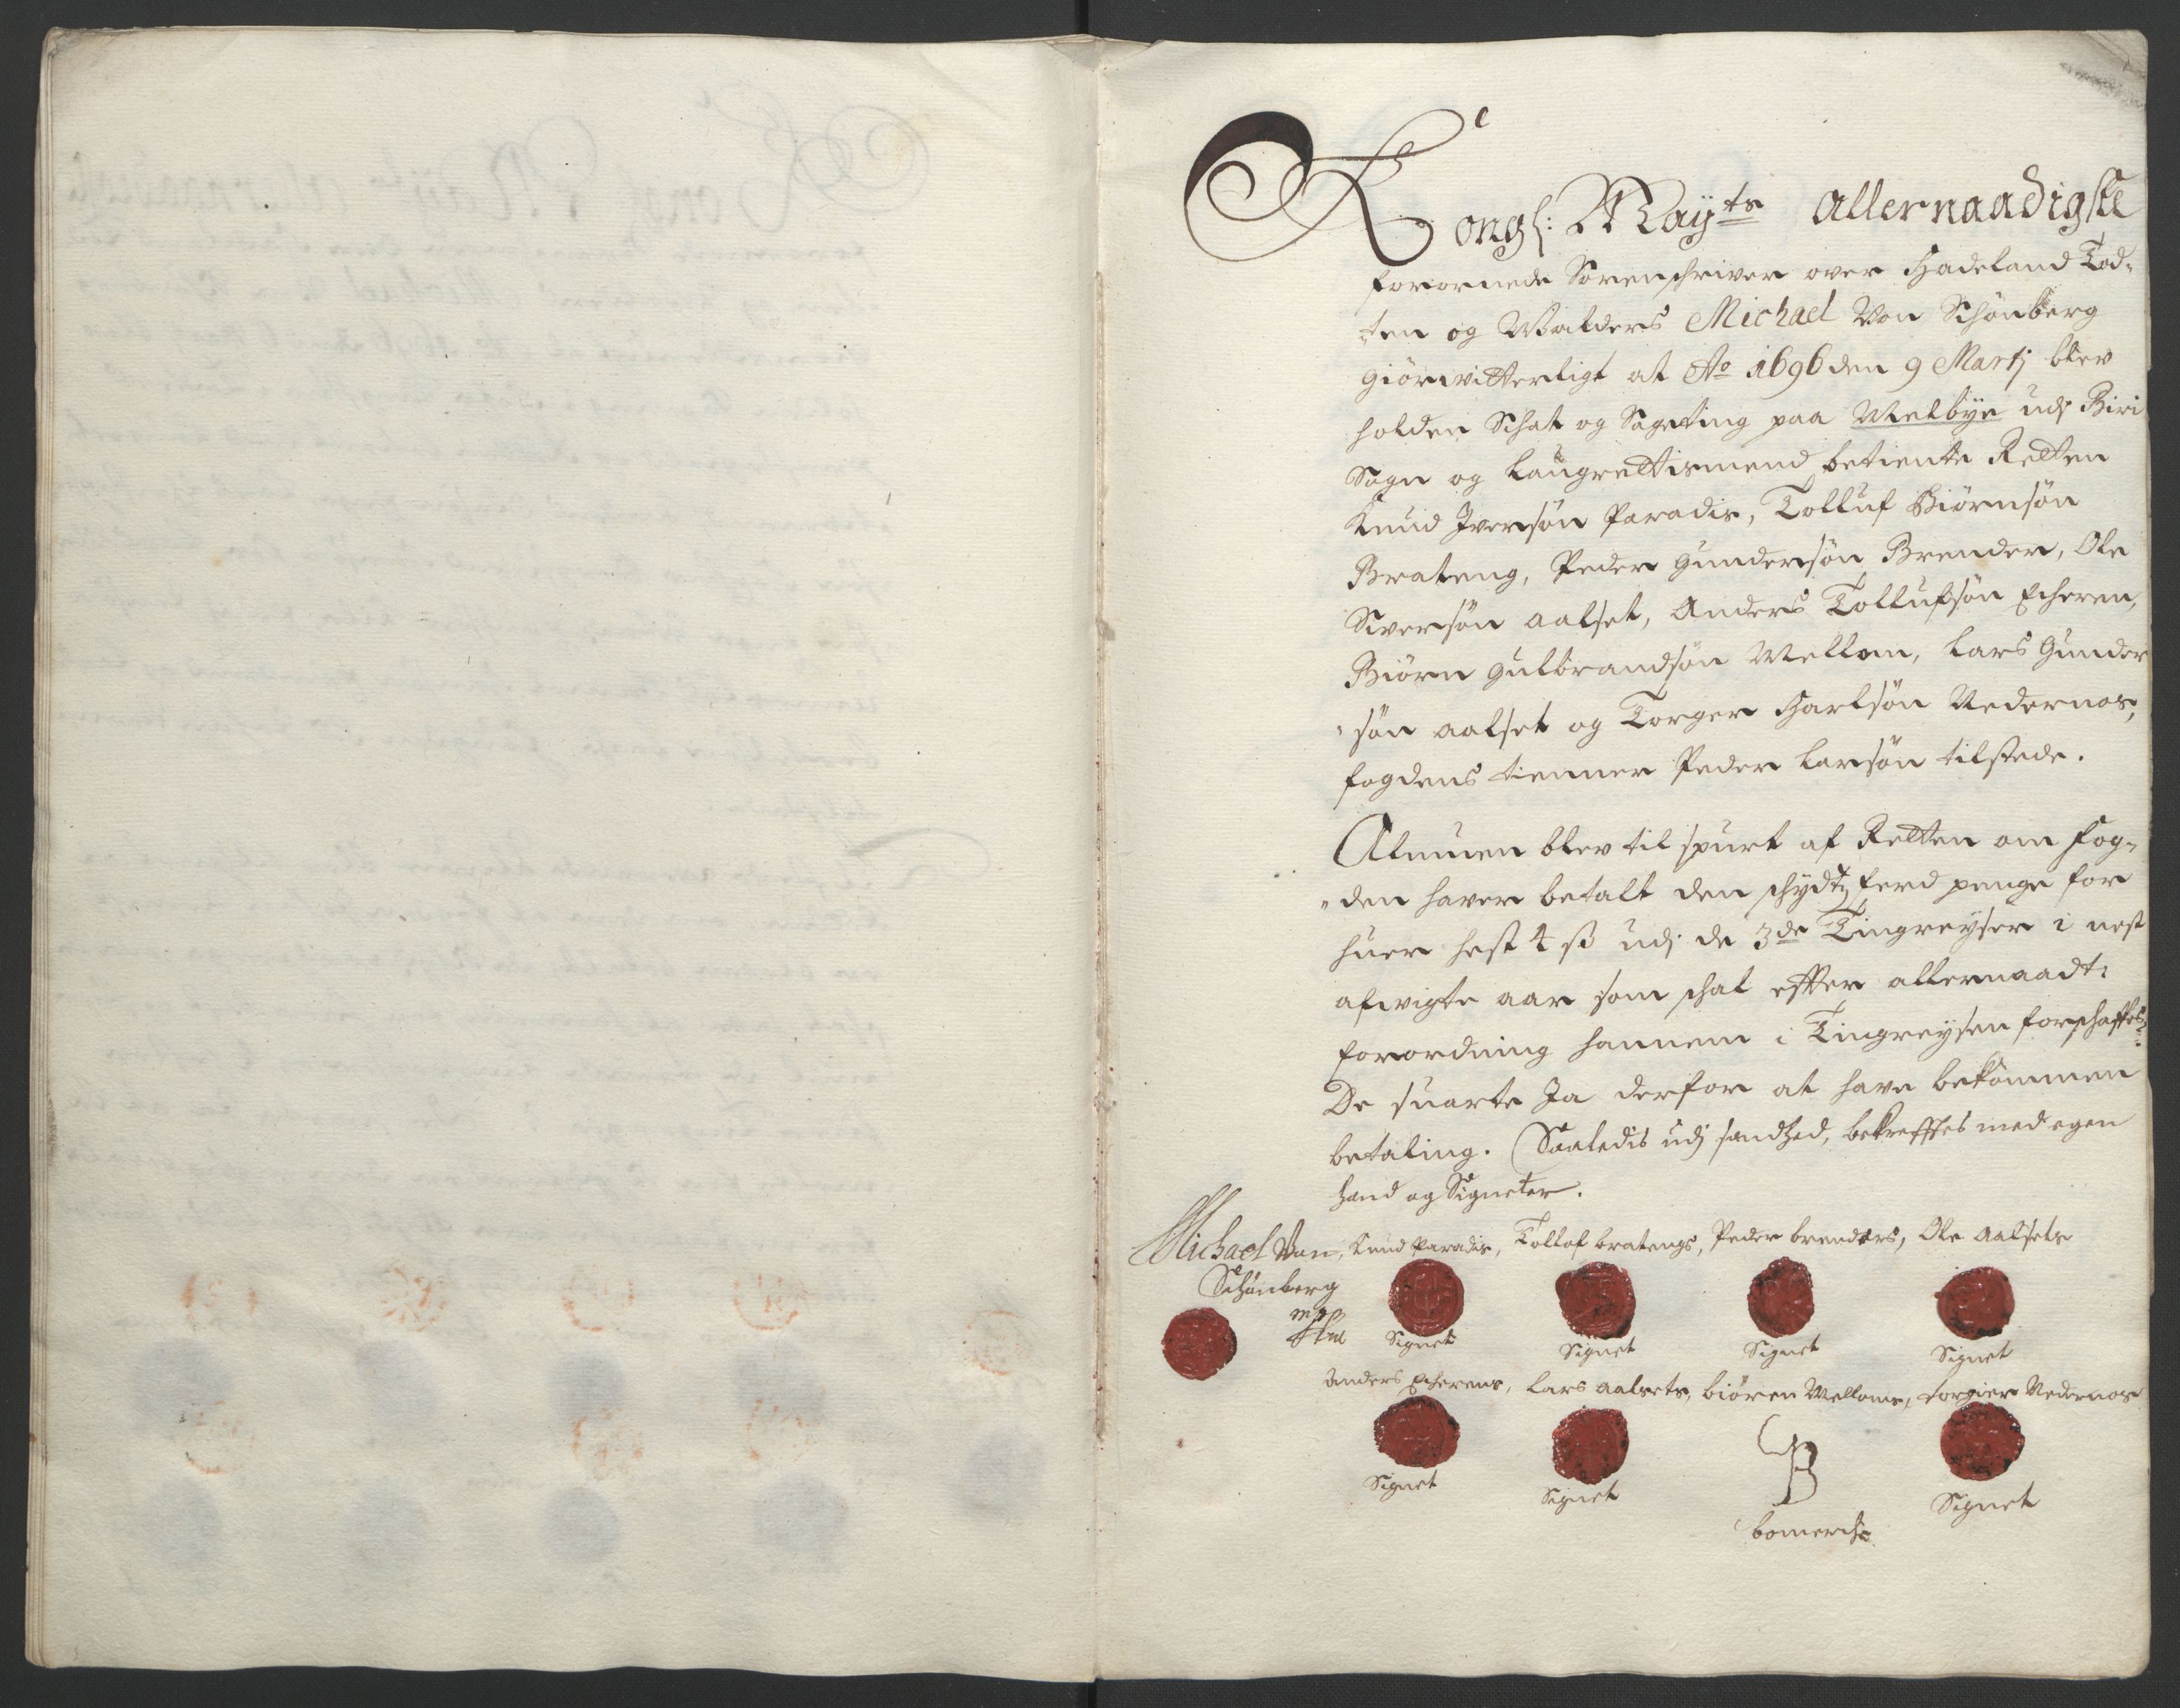 Kongl: Mayts allernaadigste
forornede Sorenschriver over Hadeland Tod-
ten og Walders Michael Von Schönberg
giör witterligt at Ao 1696 den 9 Martj blev
holden Schat og Sageting paa Melbÿe udj Biri
Sogn og Laugrettismend betiente Retten
Knud Iversön Paradis, Tolluf Biörnsön
Brateng, Peder Gundersön Brender, Ole
Siversön Aalset, Anders Tollufsön Echeren,
Biörn Gulbrandsön Mellom, Lars Gunder
sön Aalset og Torger Harlsön Nedernos,
fogdens tienner Peder Larsön tilstede.
Almuen blev tilspurt af Retten om Fog-
den haver betalt den schydtzferd penge for
huer hest 4 ß udj de 3de Tingreyser i nest
afvigte aar som schal effter allernaadt:
forordning hannem i Tingreysen forschaffes;
De suarte Ja derfor at have bekommen
betaling. Saaledis udj sandhed, bekreffftes med egen
Haand og Signeter.
Michael Von, Knud Paradis, Tollof bratengs, Peder brenders, Ole Aalsets
Schönberg
mpp
Signet Signet Signet Signet
Anders Echerens, Lars Aalsets, biören Melloms, torgier Nedernos
B
Signet Signet bomerche Signet